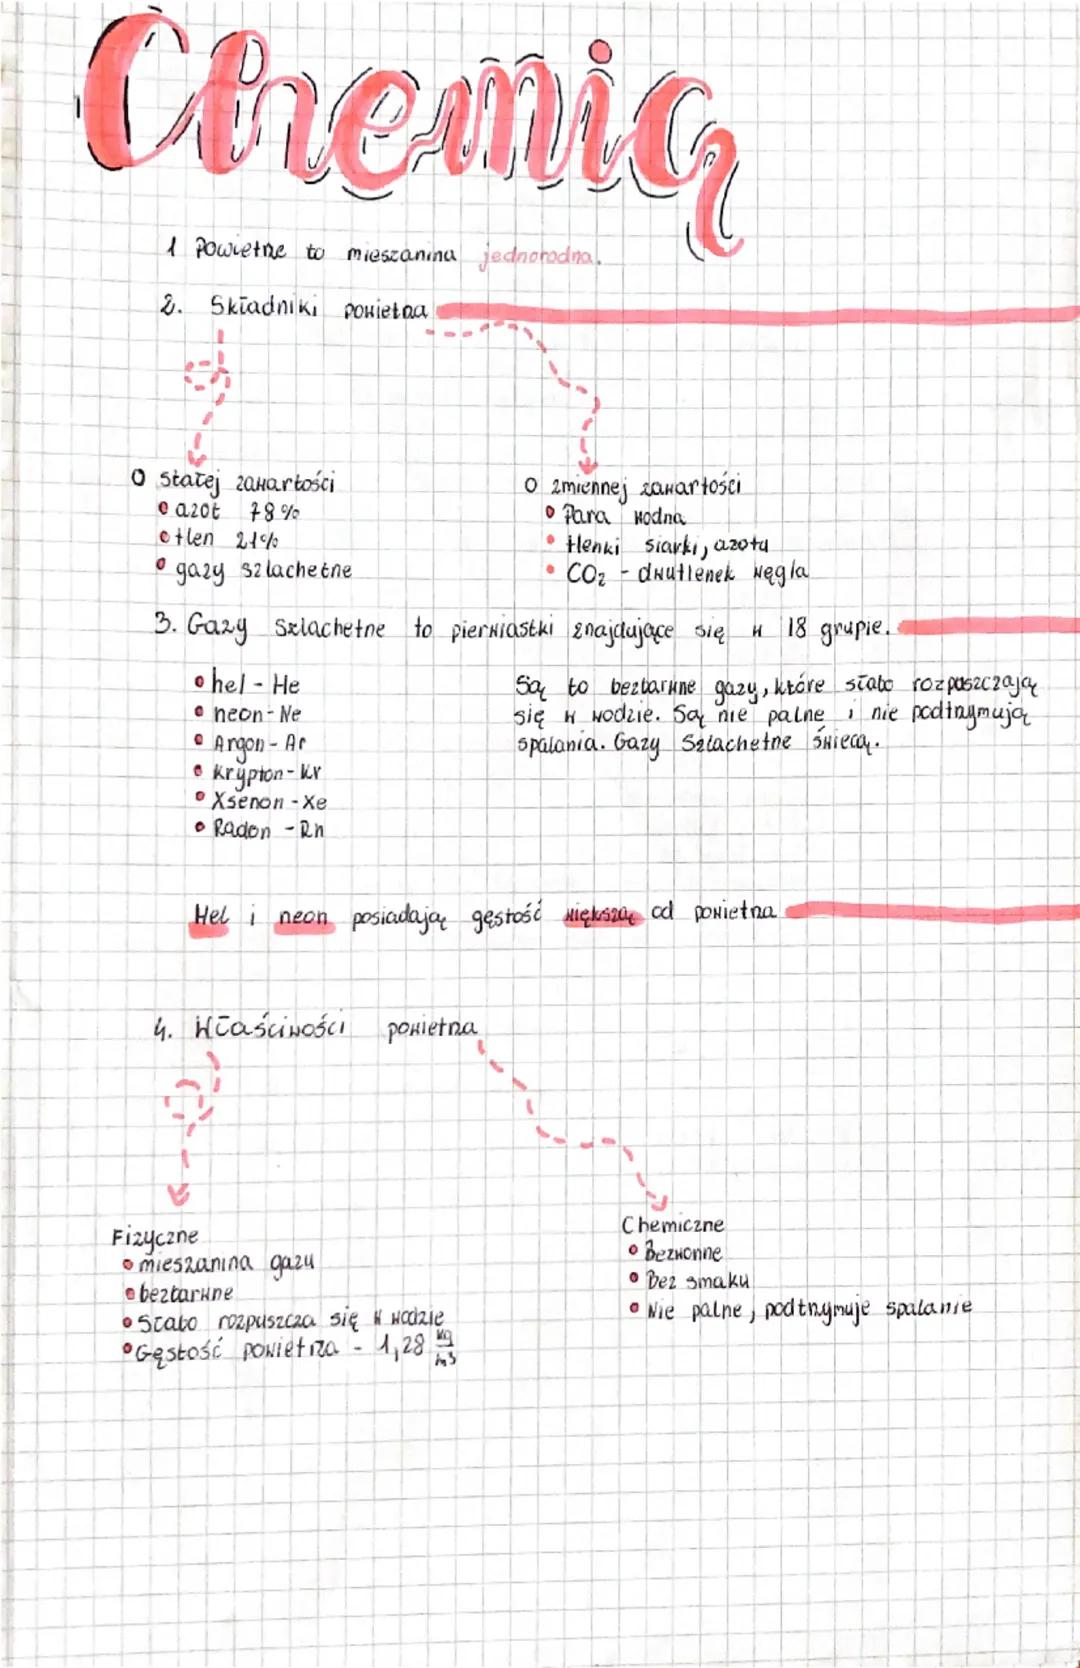 Chemia
1 Powietrze to mieszanina jednorodna.
2. Składniki powietrza
O stałej zawartości
azot 78%
tlen 21%
gazy szlachetne
O zmiennej zawartości
Para wodna
tlenki siarki, azotu
CO₂ - dwutlenek węgla
3. Gazy Szlachetne to pierwiastki znajdujące się w 18 grupie.
hel - He
neon - Ne
Argon - Ar
Krypton - Kr
Xsenon - Xe
Radon - Rn
Są to bezbarwne gazy, które słabo rozpuszczają
się w wodzie. Są nie palne i nie podtrzymują
spalania. Gazy Szlachetne świecą.
Hel i neon posiadają gęstość większą od powietrza
4. Właściwości powietrza
Fizyczne
mieszanina gazu
bezbarwne
Słabo rozpuszcza się w wodzie
Gęstość powietrza - 1,28 kg/m³
Chemiczne
Bezwonne
Bez smaku
Nie palne, podtrzymuje spalanie